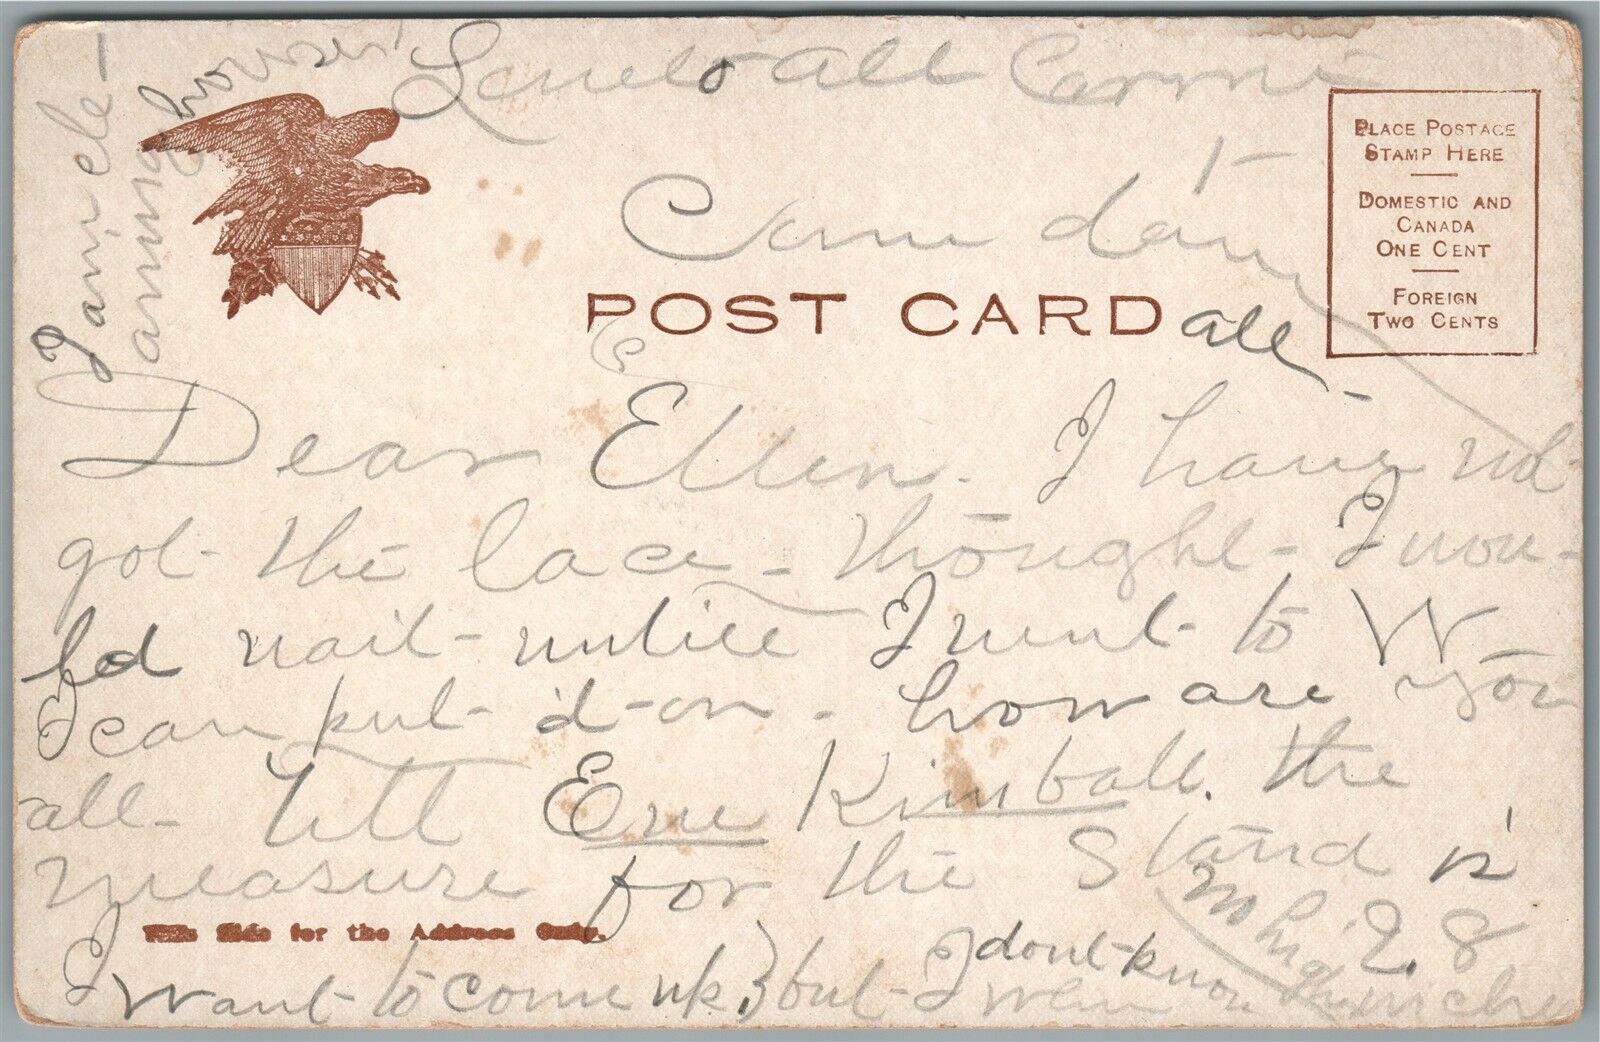 I am cle-
aning house
Love to all
Come down
all
PLACE POSTAGE
STAMP HERE
DOMESTIC AND
CANADA
ONE CENT
FOREIGN
TWO CENTS
POST CARD
Dear Ellen. I have not
got the lace - thought I wou-
ld wait until I went to W
I can put it on. how are you
all - tell Eve Kimball. the
measure for the Stand is
28 inches
This Side for the Address Only.
I want to come up, but I dont know
when